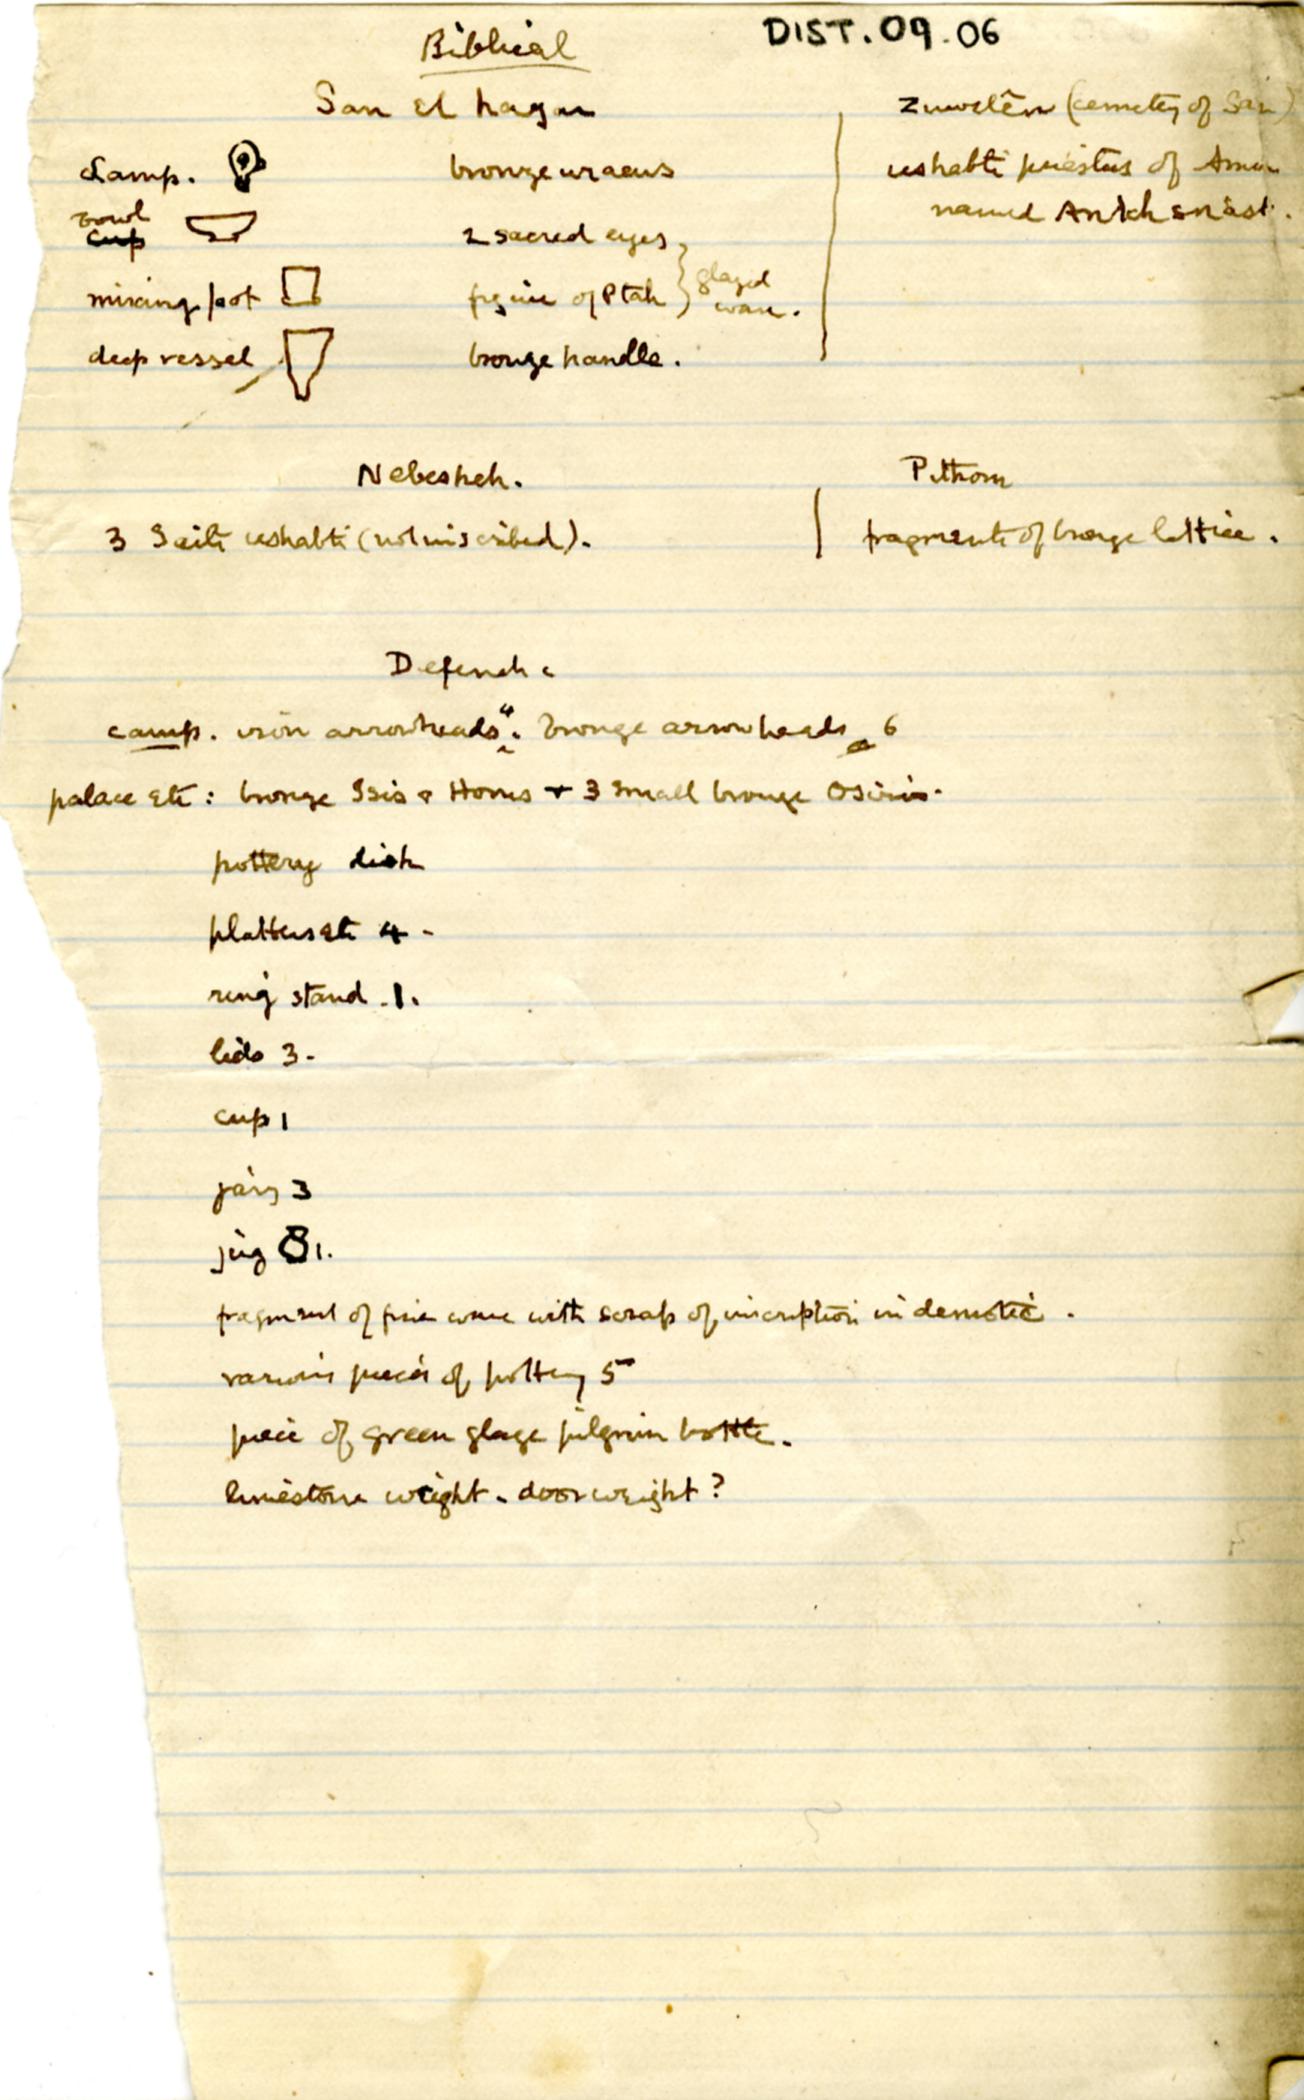 DIST. 09. 06
Biblical
San El hagar
Lamp.
bowl
cup
mixing pot
deep vessel
bronze uraeus
2 sacred eyes
figure of Ptah
glazed
ware.
bronze handle.
Zuwelên (cemetey of San)
ushabti priestess of Amen
named
Nebesheh.
3 Saite ushabti (not inscribed).
Pithom
fragments of bronze lattice.
Defeneh:
camp. iron arrowheads 4. bronze arrowheads 6
palace etc: bronze Isis & Horus + 3 small bronze Osiris.
pottery dish
platters etc 4 -
ring stand - 1.
lids 3 -
cup 1
jars 3
jug 1.
fragment of fine ware with scrap of inscription in demotic.
various pieces of pottery 5
piece of green glaze pilgrim bottle.
limestone weight - door weight?